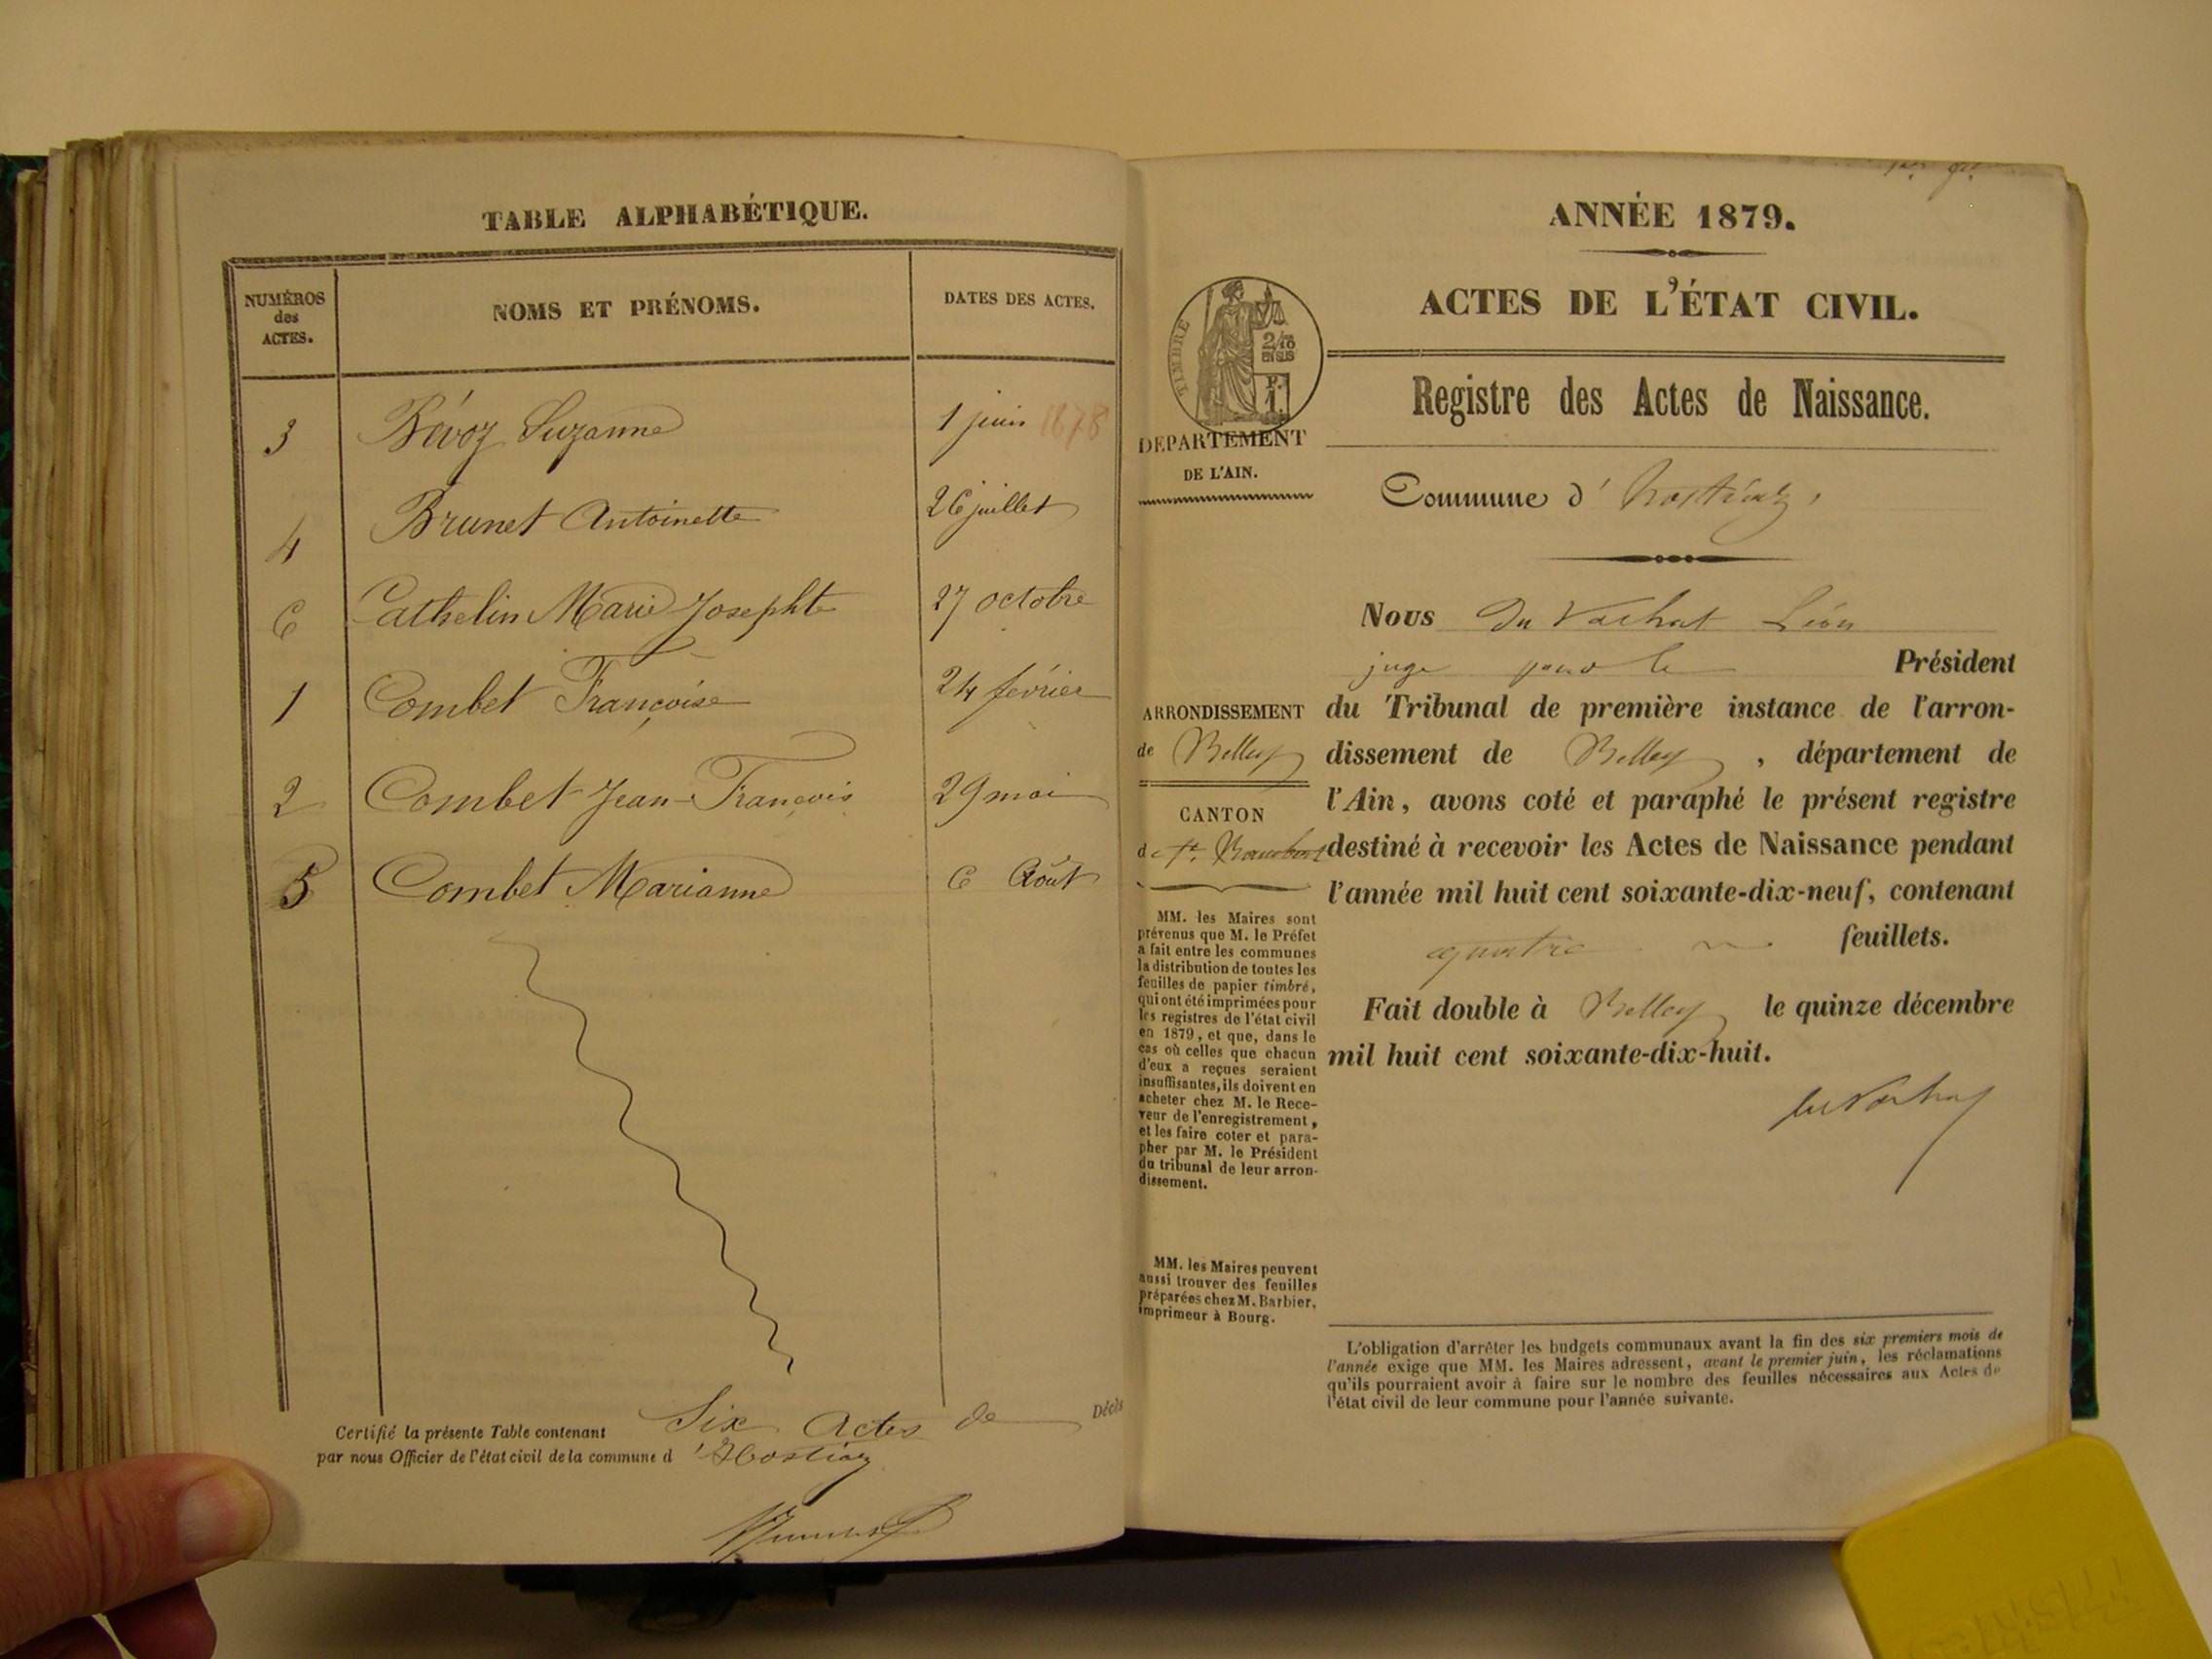 TABLE ALPHABÉTIQUE.
NUMÉROS
des
ACTES.
NOMS ET PRÉNOMS.
DATES DES ACTES.
3 Bévoz Suzanne 1 juin 1878
4 Brunet Antoinette 26 juillet
6 Cathelin Marie Josephte 27 octobre
1 Combet Françoise 24 février
2 Combet Jean-François 29 mai
5 Combet Marianne 6 Août
Certifié la présente Table contenant Six Actes de Décès
par nous Officier de l'état civil de la commune d'Hostiaz
ANNÉE 1879.
ACTES DE L'ÉTAT CIVIL.
TIMBRE
2/10
EN SUS
Registre des Actes de Naissance.
DEPARTEMENT
DE L'AIN.
Commune d'Hostiaz,
Nous Du Vachat Léon
juge pour le Président
du Tribunal de première instance de l'arron-
dissement de Belley, département de
l'Ain, avons coté et paraphé le présent registre
destiné à recevoir les Actes de Naissance pendant
l'année mil huit cent soixante-dix-neuf, contenant
quatre feuillets.
Fait double à Belley le quinze décembre
mil huit cent soixante-dix-huit.
duVachat
ARRONDISSEMENT
de Belley
CANTON
de St. Rambert
MM. les Maires sont
prévenus que M. le Préfet
a fait entre les communes
la distribution de toutes les
feuilles de papier timbré,
qui ont été imprimées pour
les registres de l'état civil
en 1879, et que, dans le
cas où celles que chacun
d'eux a reçues seraient
insuffisantes, ils doivent en
acheter chez M. le Rece-
veur de l'enregistrement,
et les faire coter et para-
pher par M. le Président
du tribunal de leur arron-
dissement.
MM. les Maires peuvent
aussi trouver des feuilles
préparées chez M. Barbier,
imprimeur à Bourg.
L'obligation d'arrêter les budgets communaux avant la fin des six premiers mois de
l'année exige que MM. les Maires adressent, avant le premier juin, les réclamations
qu'ils pourraient avoir à faire sur le nombre des feuilles nécessaires aux Actes de
l'état civil de leur commune pour l'année suivante.